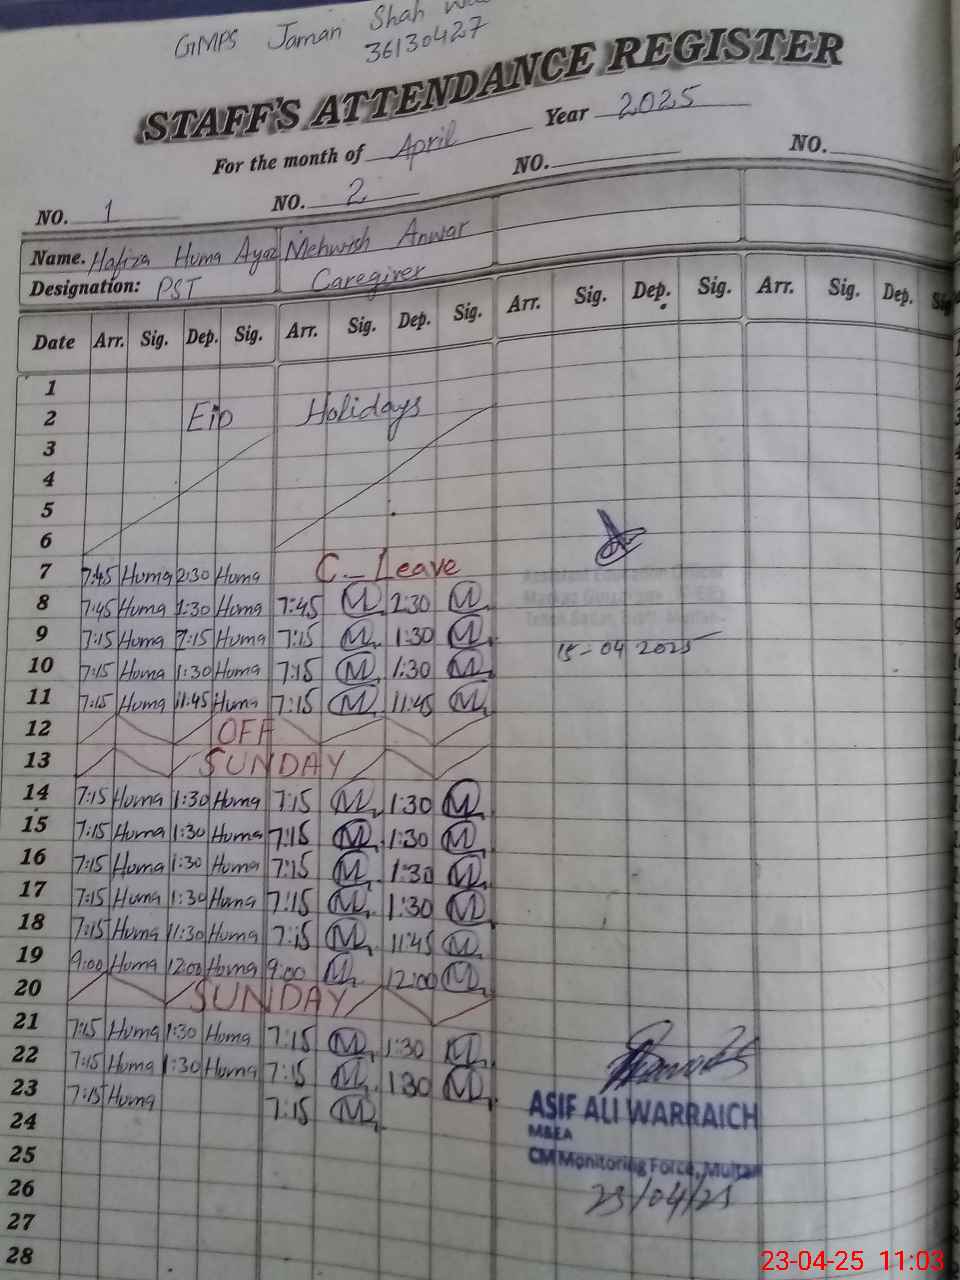 GMPS Jaman Shah
36130427
STAFF'S ATTENDANCE REGISTER
For the month of April Year 2025
NO. 1 NO. 2 NO. NO.
Name. Hafiza Huma Ayaz Mehwish Anwar
Designation: PST Caregiver
Date Arr. Sig. Dep. Sig. Arr. Sig. Dep. Sig. Arr. Sig. Dep. Sig. Arr. Sig. Dep. Sig.
1
2 Eid Holidays
3
4
5
6
7 7:45 Huma 2:30 Huma C-Leave
8 7:45 Huma 1:30 Huma 7:45 M 2:30 M
9 7:15 Huma 7:15 Huma 7:15 M 1:30 M
10 7:15 Huma 1:30 Huma 7:15 M 1:30 M
15-04 2025
11 7:15 Huma 11:45 Huma 7:15 M 11:45 M
12 OFF
13 SUNDAY
14 7:15 Huma 1:30 Huma 7:15 M 1:30 M
15 7:15 Huma 1:30 Huma 7:15 M 1:30 M
16 7:15 Huma 1:30 Huma 7:15 M 1:30 M
17 7:15 Huma 1:30 Huma 7:15 M 1:30 M
18 7:15 Huma 11:30 Huma 7:15 M 11:45 M
19 9:00 Huma 12:00 Huma 9:00 M 12:00 M
20 SUNDAY
21 7:15 Huma 1:30 Huma 7:15 M 1:30 M
22 7:15 Huma 1:30 Huma 7:15 M 1:30 M
23 7:15 Huma 7:15 M
24
25
26
27
28
ASIF ALI WARRAICH
M&EA
CM Monitoring Force, Multan
23/04/25
23-04-25 11:03